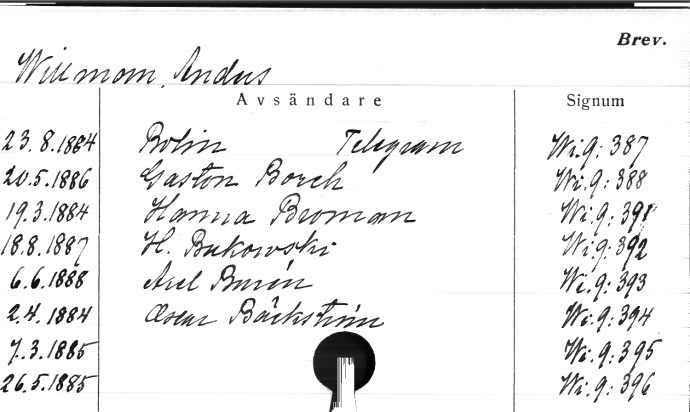 Brev.
Willmom, Andus
Avsändare Signum
23.8.1884 Bolin Telegram Wi.9:387
20.5.1886 Gaston Borch Wi.9:388
19.3.1884 Hanna Broman Wi.9:391
18.8.1887 H. Bukowski Wi.9:392
6.6.1888 Axel Burén Wi.9:393
2.4.1884 Oscar Bäckström Wi.9:394
7.3.1885 Wi.9:395
26.5.1885 Wi.9:396